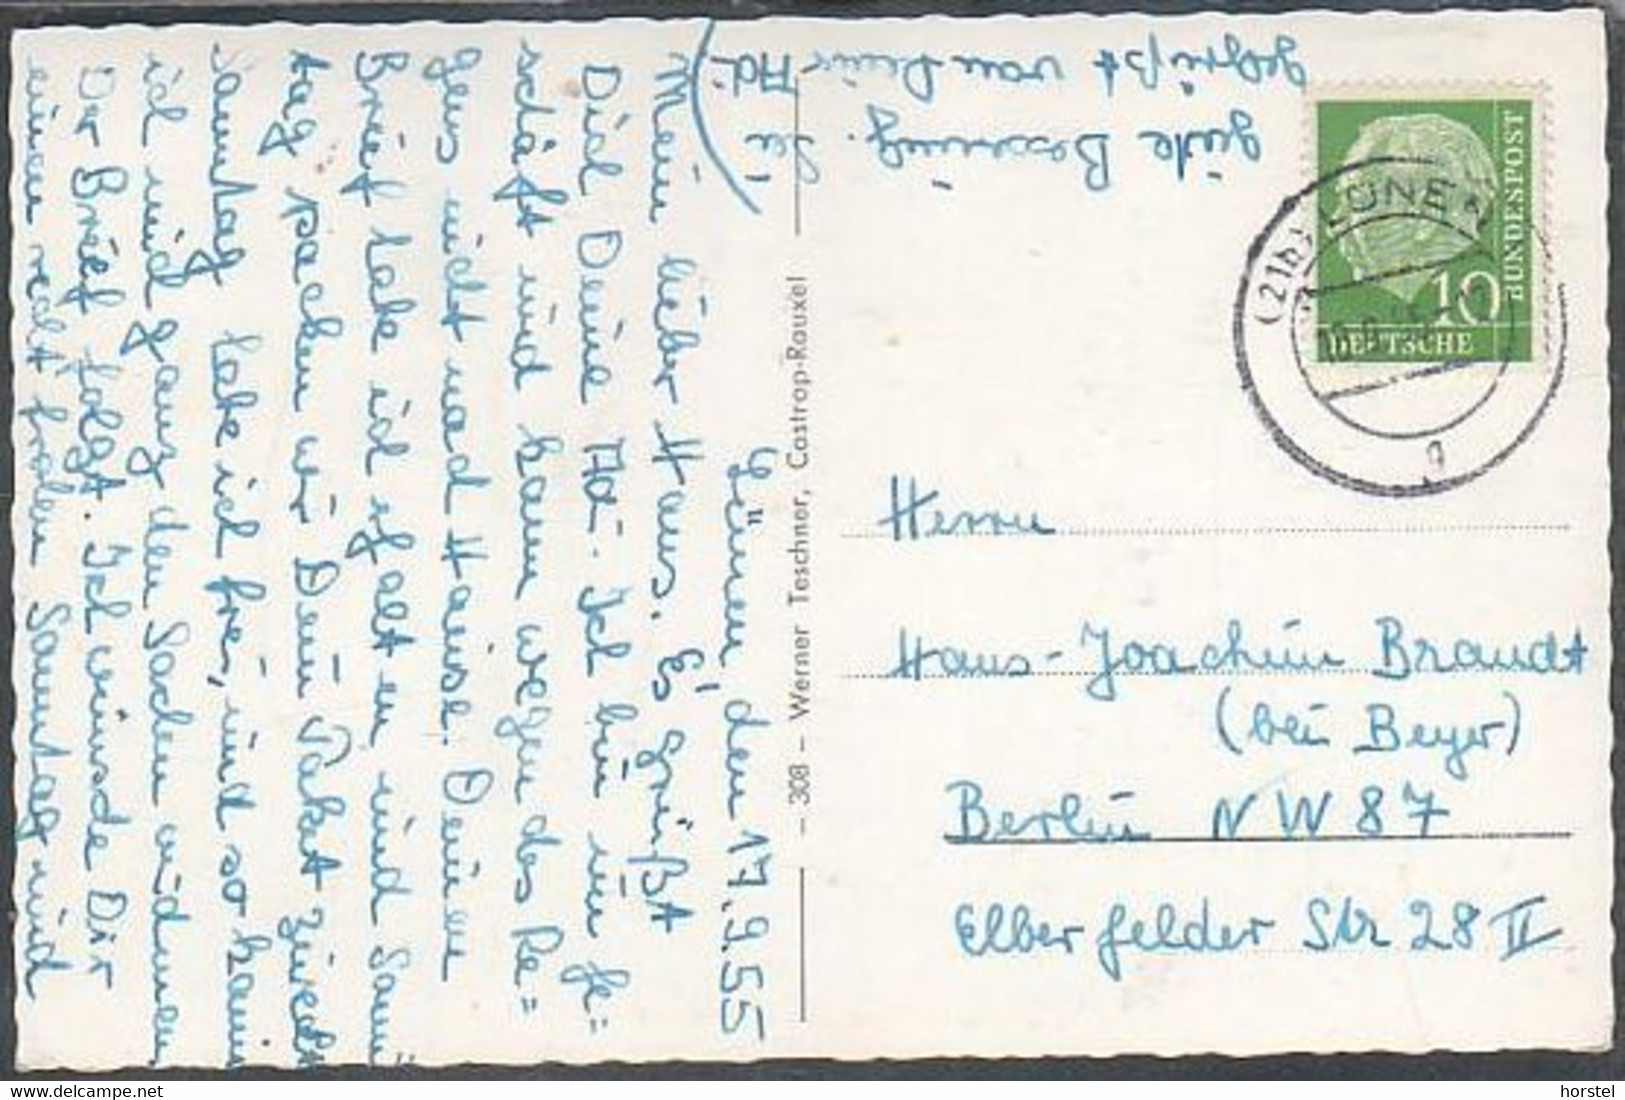 Lünen, den 17.9.55
Mein lieber Hans. Es grüßt
Dich Deine Adi. Ich bin im Ge=
schäft und kann wegen des Re=
gens nicht nach Hause. Deinen
Brief habe ich erhalten und Sam
tag packen wir Dein Paket zurecht
Samstag habe ich frei, und so kann
ich mich ganz den Sachen widmen
Der Brief folgt. Ich wünsche Dir
einen recht frohen Samstag und
gute Besserung. Sei
gegrüßt von Deiner Adi.
- 308 - Werner Teschner, Castrop-Rauxel
DEUTSCHE
BUNDESPOST
10
(21b) LÜNEN
g
Herrn
Hans-Joachim Brandt
(bei Beyer)
Berlin NW 87
Elberfelder Str 28 II
horstel